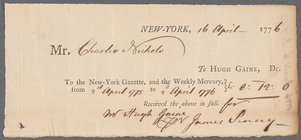 NEW-YORK, 16 April 1776
Mr. Charles Nichols
To HUGH GAINE, Dr.
To the New-York Gazette, and the Weekly Mercury,
from 2d April 1775 to 2d April 1776 £0: 12: 0
Received the above in full. for
Mr Hugh Gaine
James